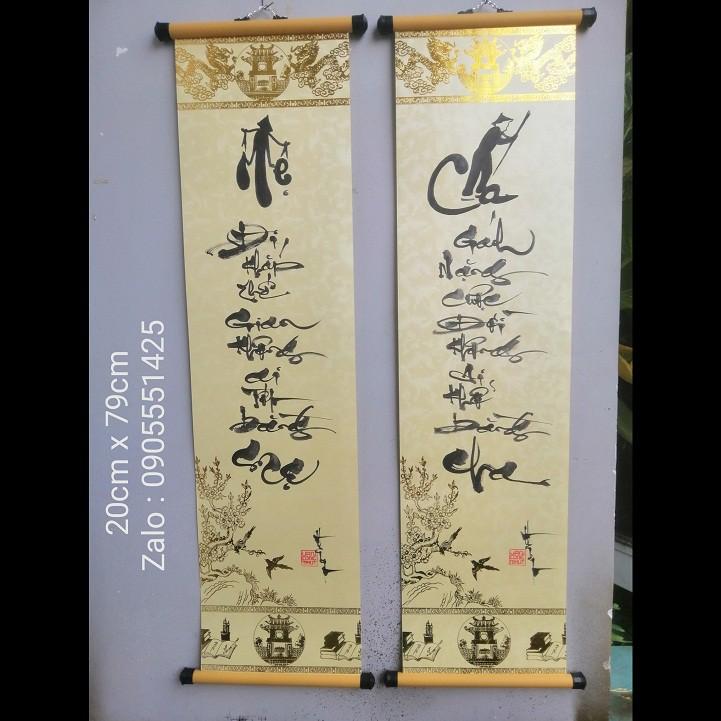 Mẹ
Đi
khắp
thế
Gian
không
ai
Tốt
bằng
Mẹ
Cha
Gánh
Nặng
cuộc
Đời
không
ai
khổ
bằng
cha
20cm x 79cm
Zalo : 0905551425